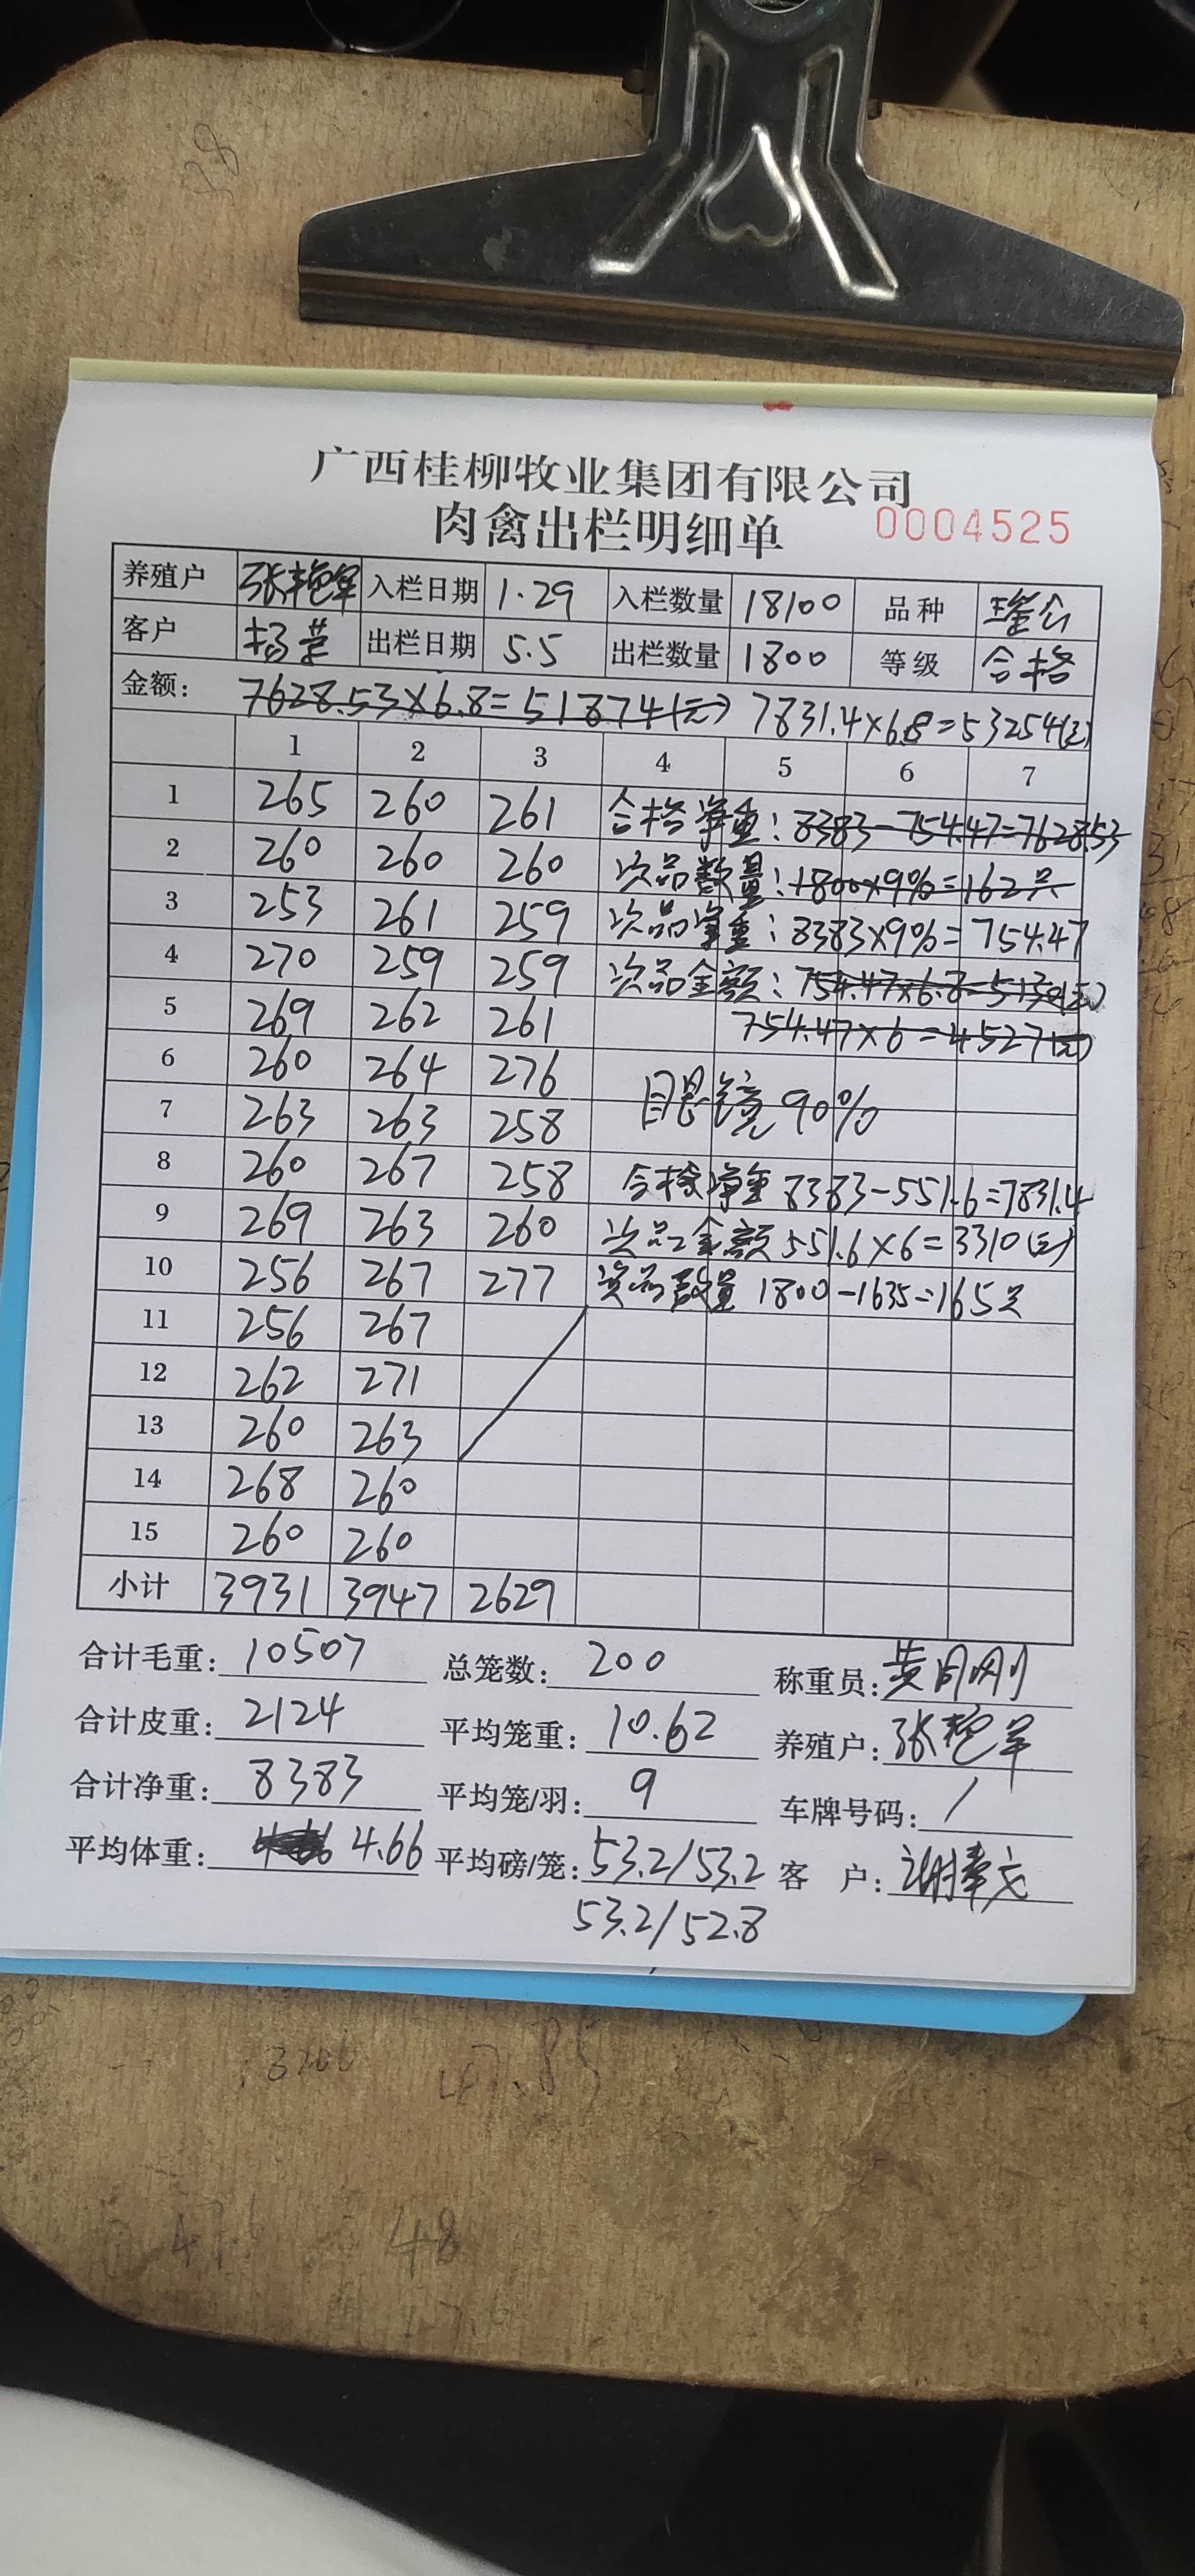 广西桂柳牧业集团有限公司
肉禽出栏明细单 0004525
养殖户 张艳军 入栏日期 1.29 入栏数量 18100 品种
客户 杨荣 出栏日期 5.5 出栏数量 1800 等级 合格
金额: 7628.53×6.8=51874(元) 7831.4×6.8=53254(元)
1 2 3 4 5 6 7
1 265 260 261 合格净重:8383-754.47=7628.53
2 260 260 260 次品数量:1800×9%=162只
3 253 261 259 次品净重:8383×9%=754.47
4 270 259 259 次品金额:754.47×6.8=5130(元)
5 269 262 261 754.47×6=4527(元)
6 260 264 276
7 263 263 258 眼镜90%
8 260 267 258 合格净重8383-551.6=7831.4
9 269 263 260 次品金额551.6×6=3310(元)
10 256 267 277 次品数量 1800-1635=165只
11 256 267
12 262 271
13 260 263
14 268 260
15 260 260
小计 3931 3947 2629
合计毛重: 10507 总笼数: 200 称重员:
合计皮重: 2124 平均笼重: 10.62 养殖户: 张艳军
合计净重: 8383 平均笼/羽: 9 车牌号码: /
平均体重: 4.66 平均磅/笼: 53.2/53.2 客 户:
53.2/52.8